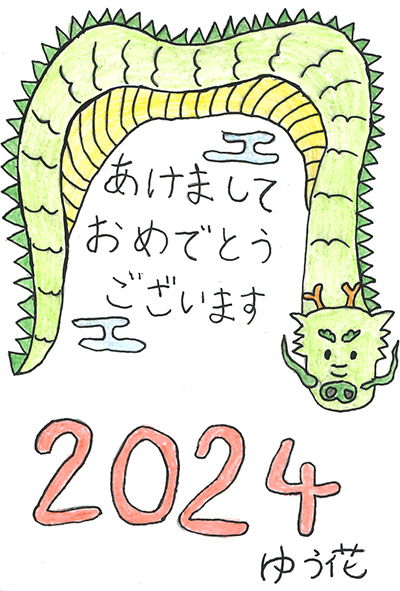 あけまして
おめでとう
ございます
2024
ゆう花